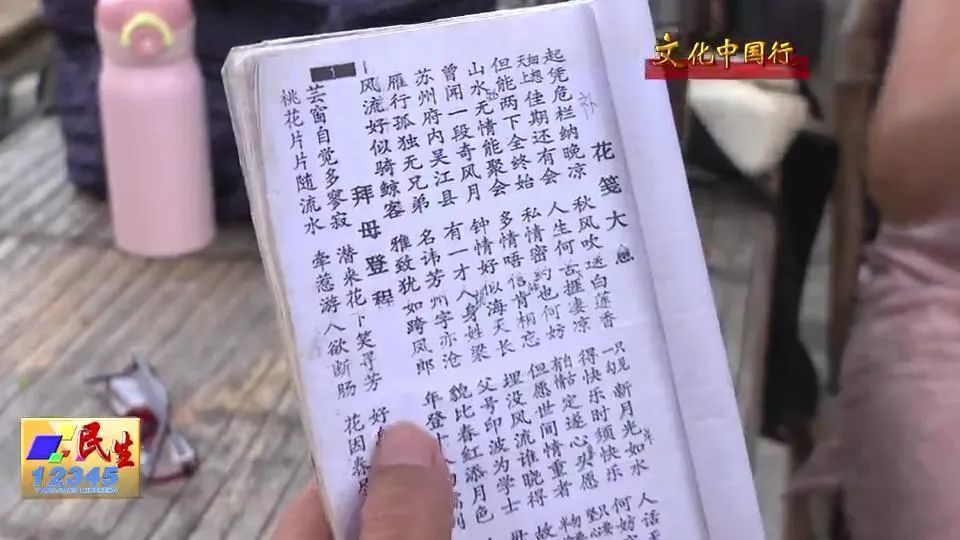 文化中国行
1
花笺大意
起凭危栏纳晚凉 秋风吹送白莲香 只见一勾新月光如水 人话天
细想天上佳期还有会 人生何苦捱凄凉 得快乐时须快乐 何
但能两下全终始 私情密约也何妨 定遂心头愿
山水无情能聚会 多情唔信肯相忘 但愿世间情重者
曾闻一段奇风月 钟情好似海天长 埋没风流谁晓得 故
苏州府内吴江县 有一才人身姓梁 父号印波为学士
雁行孤独无兄弟 名讳芳州字亦沧 貌比春红添月色
风流好似骑鲸客 雅致犹如跨风郎 年登十
拜母登程
芸窗自觉多寥寂 潜来花下笑寻芳 好
桃花片片随流水 牵惹游人欲断肠 花因春
民生
12345